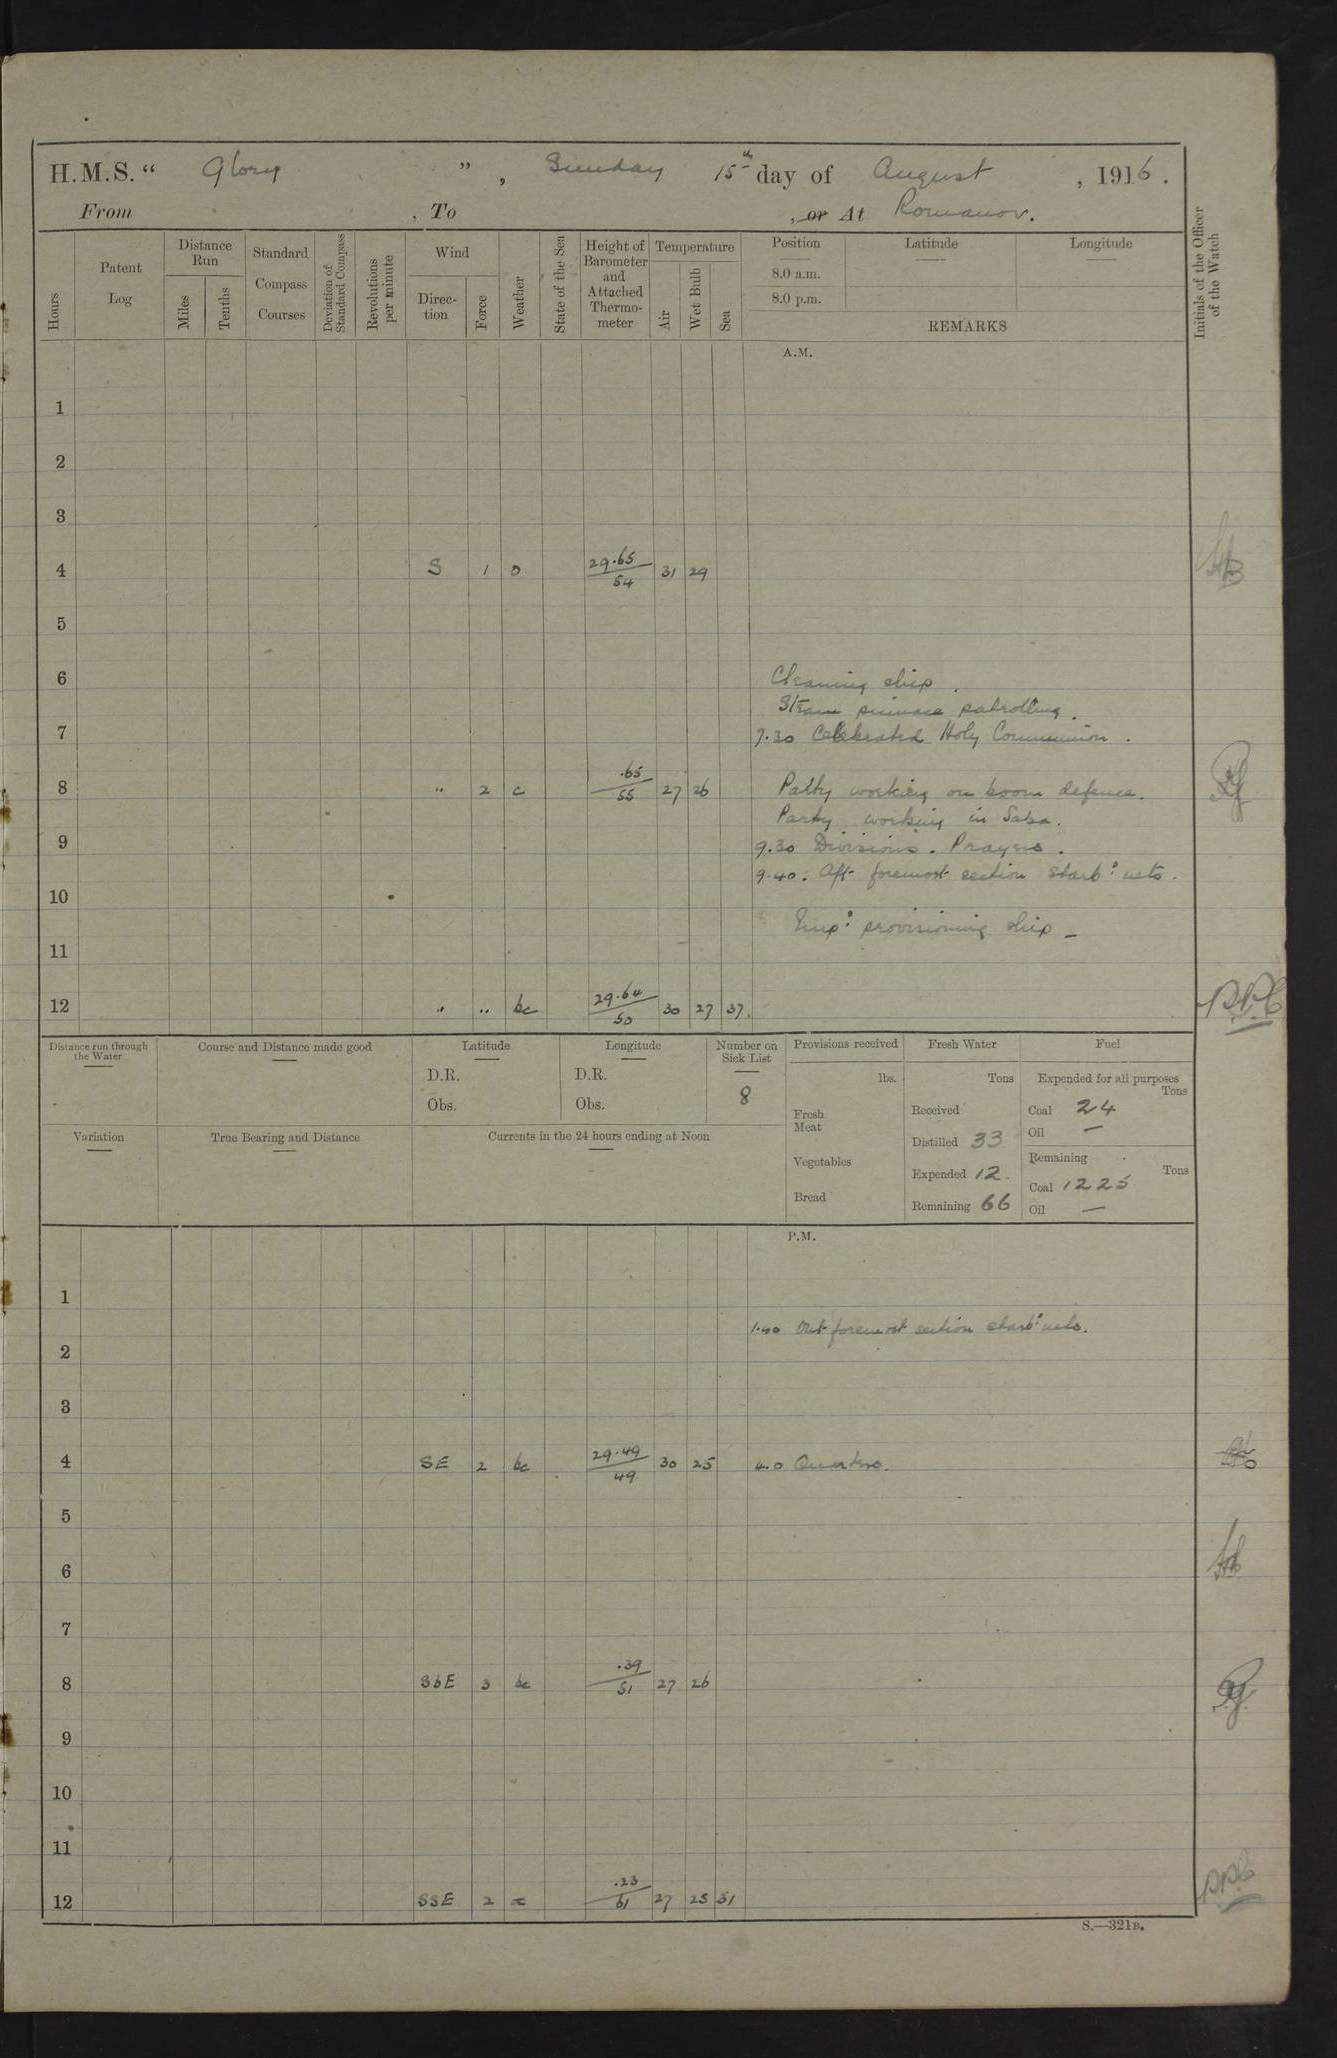 H.M.S. “ Glory ”, Sunday 15th day of August , 1916.
From , To , or At Romanov.
Hours
Patent Log
Distance Run
Miles
Tenths
Standard Compass Courses
Deviation of Standard Compass
Revolutions per minute
Wind
Direction
Force
Weather
State of the Sea
Height of Barometer and Attached Thermometer
Temperature
Air
Wet Bulb
Sea
Position
8.0 a.m.
8.0 p.m.
Latitude
Longitude
REMARKS
Initials of the Officer of the Watch
A.M.
1
2
3
4 S 1 o 29.65/54 31 29
5
6 Cleaning ship.
Steam pinnace patrolling.
7 7.30 Celebrated Holy Communion.
8 " 2 c .65/55 27 26 Party working on boom defence.
Party working in Saba.
9 9.30 Divisions. Prayers.
9.40. Aft foremost section starbd nets.
10
Empd provisioning ship –
11
12 " " bc 29.64/50 30 27 37. P.P.C
Distance run through the Water
Course and Distance made good
Latitude
D.R.
Obs.
Longitude
D.R.
Obs.
Number on Sick List
8
Variation
True Bearing and Distance
Currents in the 24 hours ending at Noon
Provisions received
lbs.
Fresh Meat
Vegetables
Bread
Fresh Water
Tons
Received
Distilled 33
Expended 12.
Remaining 66
Fuel
Expended for all purposes
Tons
Coal 24
Oil —
Remaining
Tons
Coal 1225
Oil —
P.M.
1
1.40 Out foremost section starbd nets.
2
3
4 SE 2 bc 29.49/49 30 25 4.0 Quarters.
5
6
7
8 SbE 3 bc .39/51 27 26
9
10
11
12 SSE 2 c .23/61 27 25 31 P.P.C
S.—321B.